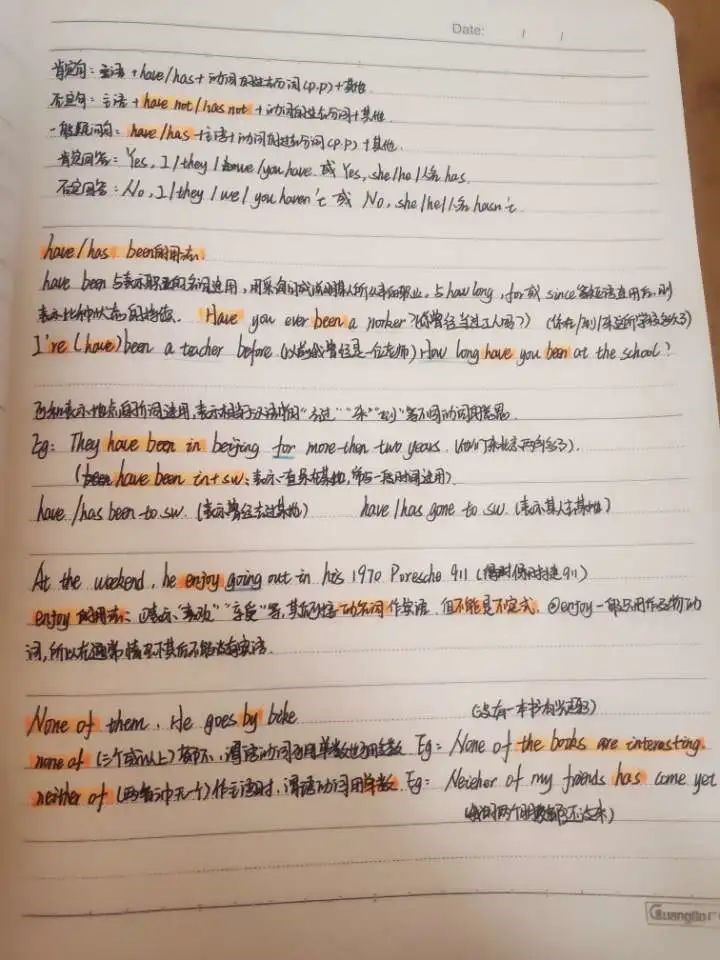 Date: / /
肯定句：主语 + have/has + 动词的过去分词(p.p) + 其他
否定句：主语 + have not/has not + 动词的过去分词 + 其他
一般疑问句：have/has + 主语 + 动词的过去分词(p.p) + 其他.
肯定回答：Yes, I/they/ /you have. 或 Yes, she/he/ has.
否定回答：No, I/they/we/you haven't 或 No, she/he/ hasn't.
have/has been的用法.
have been 与表示职业的名词连用，用来询问或说明某人所从事的职业，与how long, for或 since 等 连用，则
表示 状态的持续. Have you ever been a worker?(你曾经当过工人吗?)
I've (have) been a teacher before (以前我曾经是一位老师) How long have you been at the school?
还和表示地点的 词连用，表示相当于汉语中的"去过""来""到"等不同的词用意思.
Eg: They have been in beijing for more then two years. (他们来北京两年多了).
( have been in + sw: 表示一直呆在某地, 常与一段时间连用).
have/has been to sw. (表示曾经去过某地) have/has gone to sw. (表示某人去某地)
At the weekend, he enjoy going out in his 1970 Poresche 911 ( 保时捷911)
enjoy 的用法: 表示"喜欢""享受"等, 其后 接动名词作宾语. 但不能是不定式. ②enjoy一般只用作及物动
词, 所以在通常情况下其后不能 宾语.
None of them. He goes by bike (没有一本书有 )
none of (三个或以上) 都不, 谓语动词 用单数也 用复数 Eg: None of the books are interesting.
neither of (两者中无一个) 作主语时, 谓语动词用单数. Eg: Neither of my friends has come yet
(我的两个朋友都还没来)
Guangbo